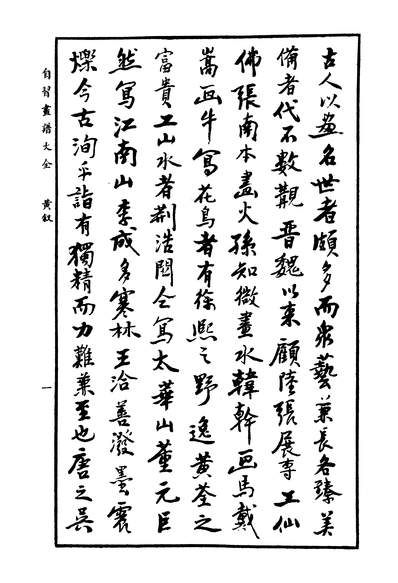 古人以畫名世者頗多而衆藝兼長各臻美
備者代不數觀晋魏以来顧陸張展專工仙
佛張南本畫火孫知微畫水韓幹画馬戴
嵩画牛寫花鳥者有徐熙之野逸黄荃之
富貴工山水者荆浩關仝寫太華山董元巨
然寫江南山李成多寒林王洽善潑墨震
爍今古洵乎詣有獨精而力難兼至也唐之吴
自習畫譜大全 黄叙 一